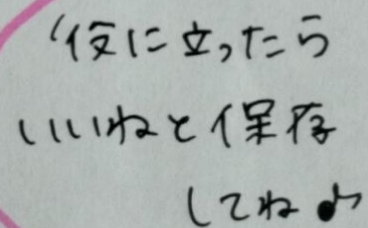 役に立ったら
いいねと保存
してね♪